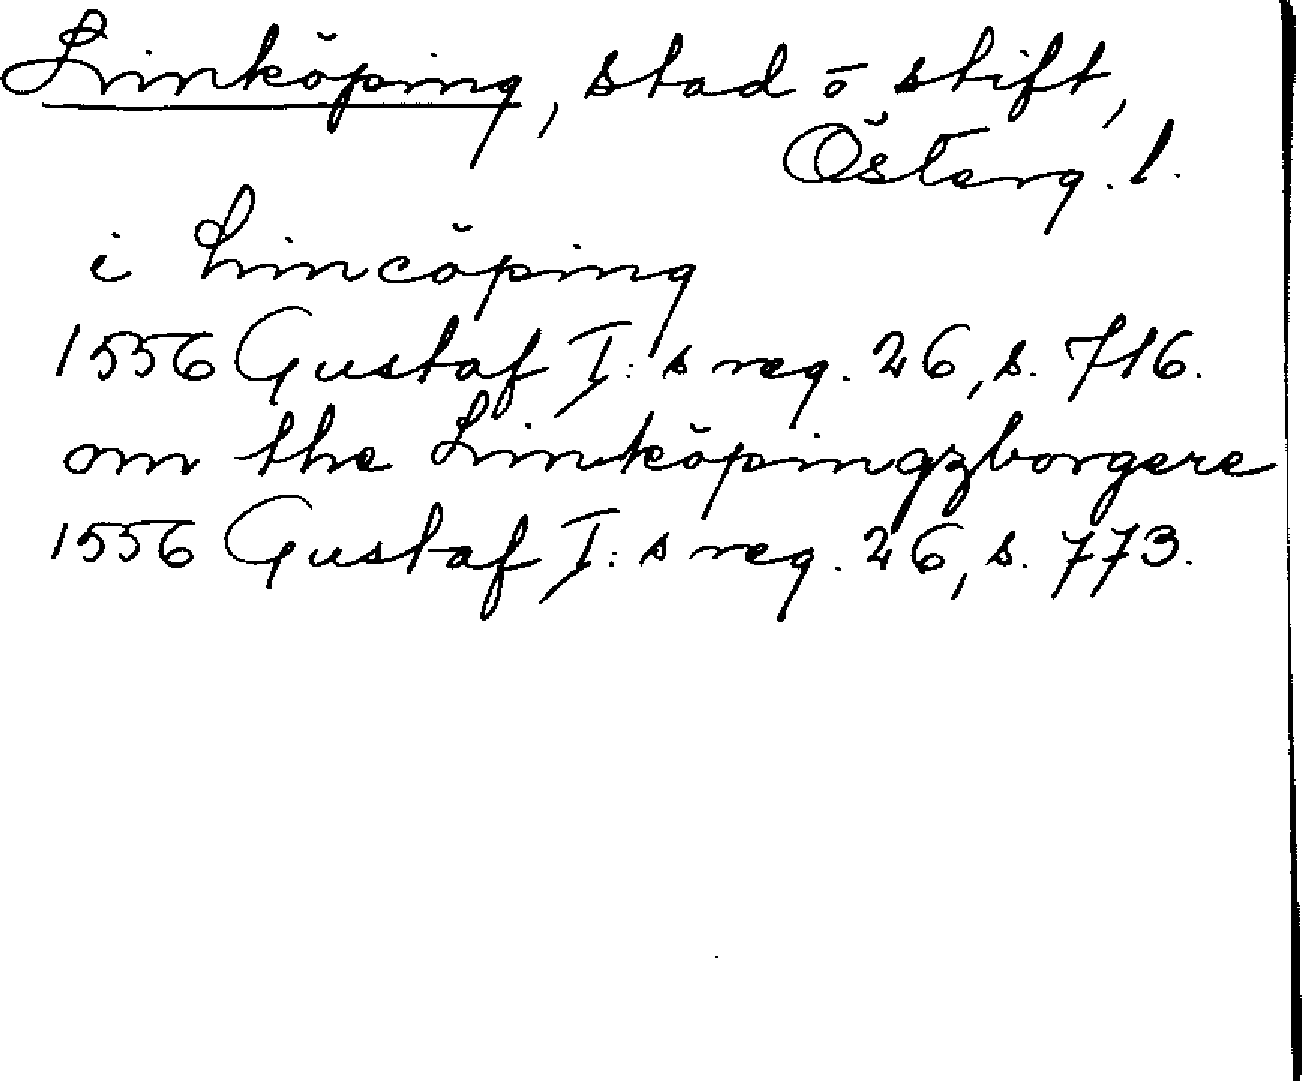 Linköping, stad o stift,
Österg. l.
i Lincöping
1556 Gustaf I:s reg. 26, s. 716.
om the Linköpingzborgere
1556 Gustaf I:s reg. 26, s. 773.